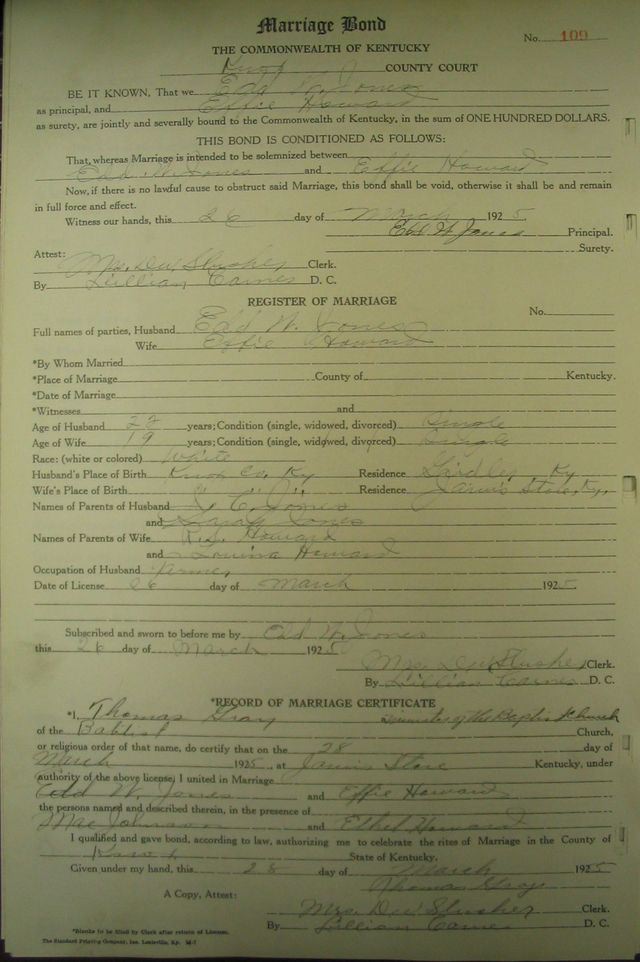 Marriage Bond
No. 109
THE COMMONWEALTH OF KENTUCKY
Knox COUNTY COURT
BE IT KNOWN, That we Edd W. Jones
as principal, and Effie Howard
as surety, are jointly and severally bound to the Commonwealth of Kentucky, in the sum of ONE HUNDRED DOLLARS.
THIS BOND IS CONDITIONED AS FOLLOWS:
That, whereas Marriage is intended to be solemnized between
Edd W. Jones and Effie Howard
Now, if there is no lawful cause to obstruct said Marriage, this bond shall be void, otherwise it shall be and remain
in full force and effect.
Witness our hands, this 26 day of March 1925
Edd W. Jones Principal.
Surety.
Attest:
Mrs. Dew Slusher Clerk.
By Lillian Carnes D. C.
REGISTER OF MARRIAGE
No.
Full names of parties, Husband Edd W. Jones
Wife Effie Howard
*By Whom Married
*Place of Marriage County of Kentucky.
*Date of Marriage
*Witnesses and
Age of Husband 22 years; Condition (single, widowed, divorced) Single
Age of Wife 19 years; Condition (single, widowed, divorced) Single
Race: (white or colored) White
Husband's Place of Birth Knox Co. Ky Residence Girdler, Ky
Wife's Place of Birth " " " Residence Jarvis Store, Ky.
Names of Parents of Husband Jones
and Jones
Names of Parents of Wife Howard
and Lourina Howard
Occupation of Husband Farmer
Date of License 26 day of March 1925
Subscribed and sworn to before me by Edd W. Jones
this 26 day of March 1925
Mrs. Dew Slusher Clerk.
By Lillian Carnes D. C.
*RECORD OF MARRIAGE CERTIFICATE
*I, Thomas Gray minister of the Baptist Church
of the Baptist Church,
or religious order of that name, do certify that on the 28 day of
March 1925, at Jarvis Store Kentucky, under
authority of the above license, I united in Marriage
Edd W. Jones and Effie Howard
the persons named and described therein, in the presence of
Mae Johnson and Ethel Howard
I qualified and gave bond, according to law, authorizing me to celebrate the rites of Marriage in the County of
Knox State of Kentucky.
Given under my hand, this 28 day of March 1925
Thomas Gray
A Copy, Attest:
Mrs. Dew Slusher Clerk.
By Lillian Carnes D. C.
*Blanks to be filled by Clerk after return of License.
The Standard Printing Company, Inc. Louisville, Ky. M-7